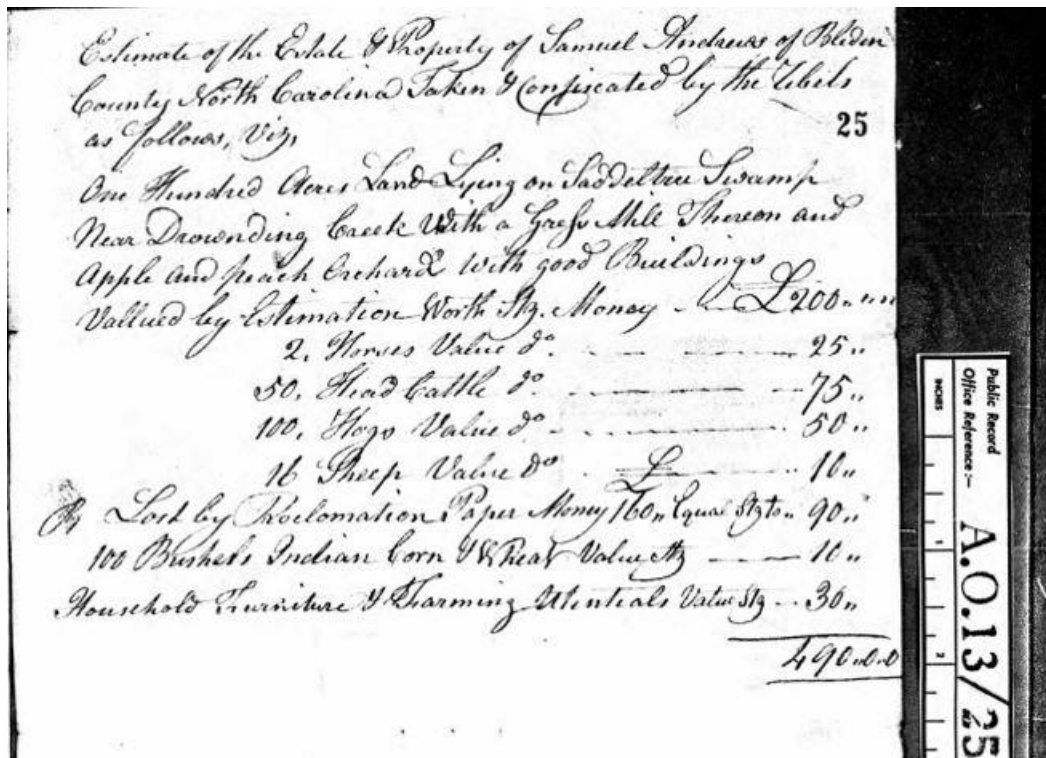 Estimate of the Estate & Property of Samuel Andrews of Bladin
County North Carolina Taken & Confiscated by the Rebels
as follows, Viz,
25
One Hundred Acres Land Lying on Saddeltree Swamp
Near Drownding Creek With a Gress Mill Thereon and
Apple and peach Orchard with good Buildings
Vallued by Estimation Worth Stg. Money £200
2. Horses Value do. 25
50. Head Cattle do. 75
100. Hogs Value do 50
16 Sheep Value do £ 10
Lost by Proclomation Paper Money 160 Equal Stg to 90
100 Bushels Indian Corn & Wheat Value Stg 10
Household Furniture & Farming Utentials Value Stg 30
490..0..0
Public Record
Office Reference:-
A.O.13/25
INCHES
1
2